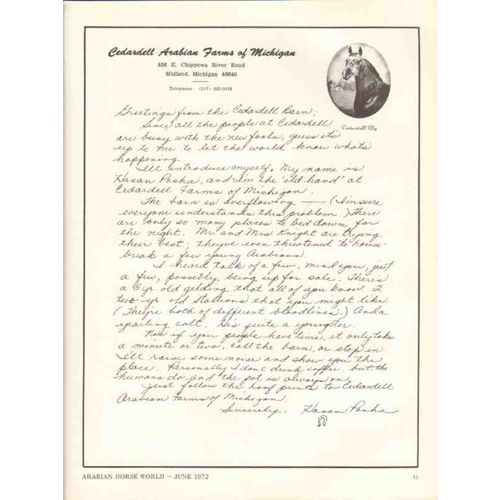 Cedardell Arabian Farms of Michigan
458 E. Chippewa River Road
Midland, Michigan 48640
Telephone:
Cedardell
Greetings from the Cedardell Barn;
Since all the people at Cedardell
are busy with the new foals, guess its
up to me to let the world know whats
happening.
I'll introduce myself. My name is
Hasan Pasha, and I'm the "old hand" at
Cedardell Farms of Michigan.
The barn is overflowing — (I'm sure
everyone understands this problem.) There
are only so many places to bed down for
the night. Mr. and Mrs. Knight are trying
their best; theyve even threatened to house-
break a few young Arabians.
I heard talk of a few, mind you, just
a few, possibly being up for sale. There's
a 6 yr old gelding that all of you know 2
two yr. old stallions that you might like.
(They're both of different bloodlines.) And a
yearling colt. He's quite a youngster.
Now if you people have time, it only takes
a minute or two, call the barn, or stop in.
I'll raise some noise and show you the
place. Personally I don't drink coffee, but the
humans do, and the pot is always on.
Just follow the hoof prints to Cedardell
Arabian Farms of Michigan
Sincerely, Hasan Pasha
ARABIAN HORSE WORLD – JUNE 1972
51